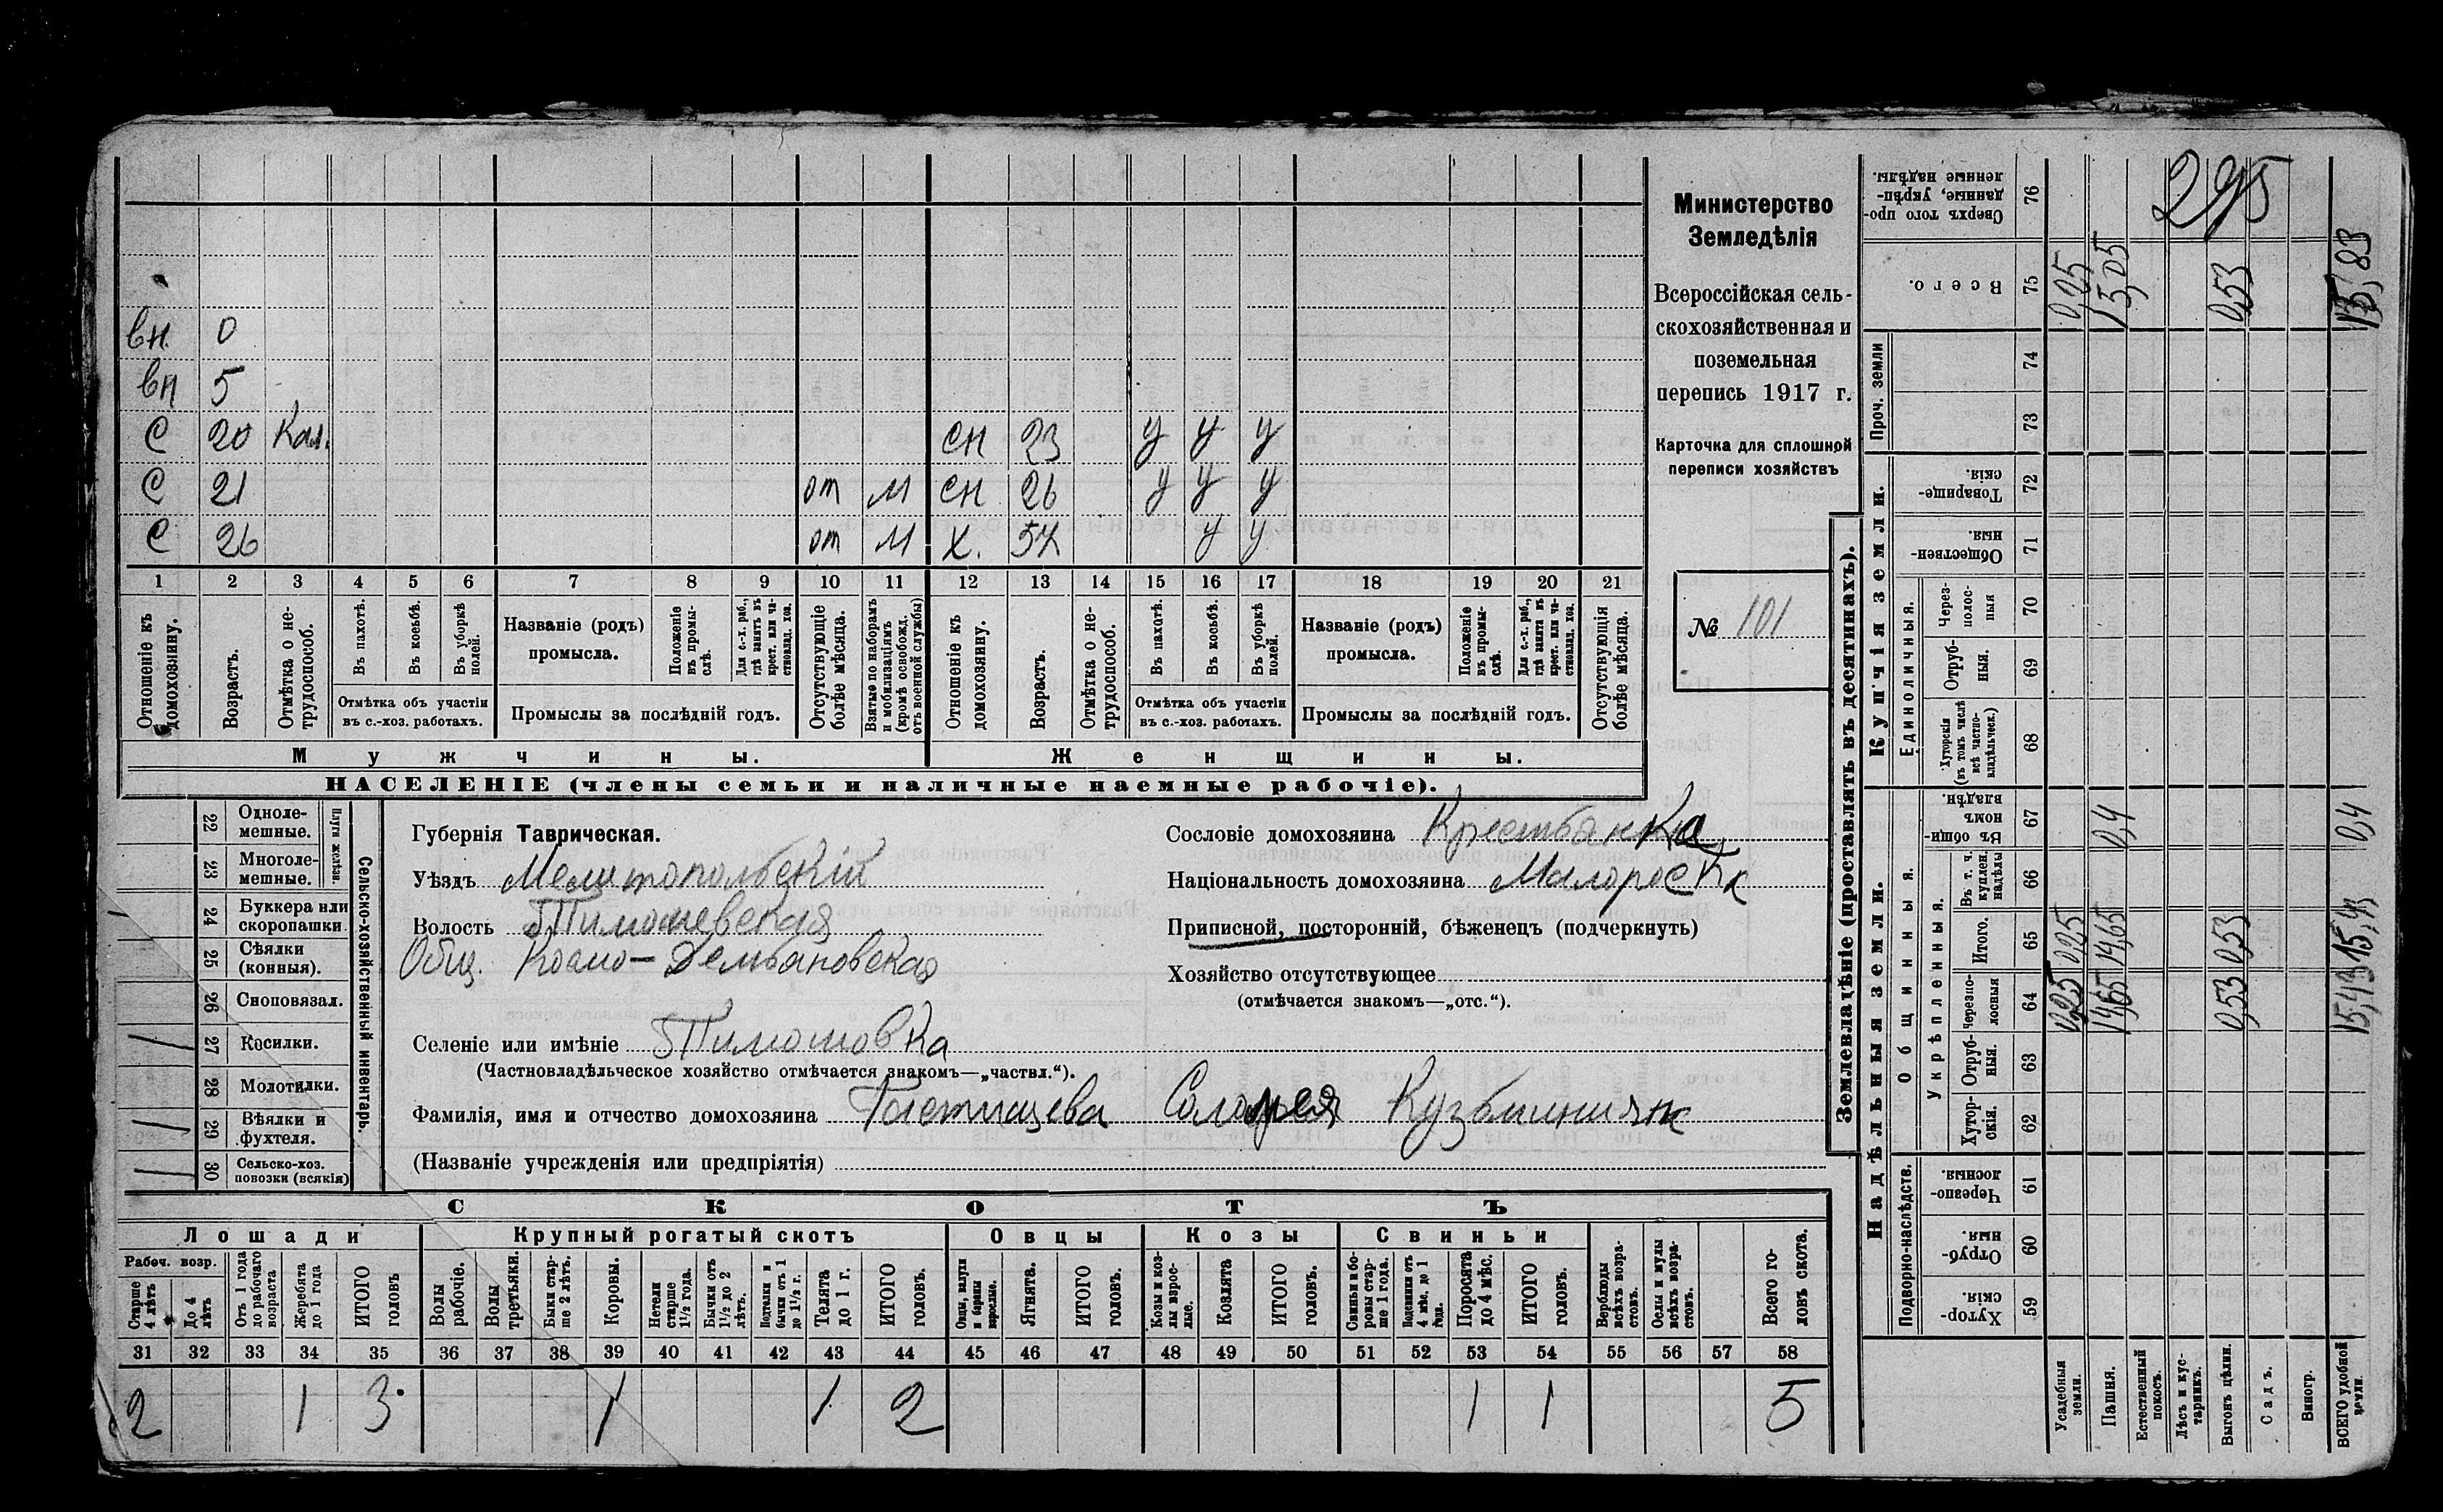 вн. 0
вн 5
С 20 Кал. сн 23 у у у
С 21 от М сн 26 у у у
С 26 от М х. 54 у у
1 2 3 4 5 6 7 8 9 10 11 12 13 14 15 16 17 18 19 20 21
Отношеніе къ домохозяину.
Возрастъ.
Отмѣтка о нетрудоспособ.
Въ пахотѣ.
Въ косьбѣ.
Въ уборкѣ полей.
Отмѣтка объ участіи
въ с.-хоз. работахъ.
Названіе (родъ)
промысла.
Положеніе въ промыслѣ.
Для с.-х. раб., гдѣ занятъ въ крест. или частновлад. хоз.
Промыслы за послѣдній годъ.
Отсутствующіе болѣе мѣсяца.
Взятые по наборамъ и мобилизаціямъ (кромѣ освобожд. отъ военной службы)
Отношеніе къ домохозяину.
Возрастъ.
Отмѣтка о нетрудоспособ.
Въ пахотѣ.
Въ косьбѣ.
Въ уборкѣ полей.
Отмѣтка объ участіи
въ с.-хоз. работахъ.
Названіе (родъ)
промысла.
Положеніе въ промыслѣ.
Для с.-х. раб., гдѣ занята въ крест. или частновлад. хоз.
Промыслы за послѣдній годъ.
Отсутствующія болѣе мѣсяца.
Мужчины. Женщины.
НАСЕЛЕНІЕ (члены семьи и наличные наемные рабочіе).
Министерство
Земледѣлія
Всероссійская сель-
скохозяйственная и
поземельная
перепись 1917 г.
Карточка для сплошной
переписи хозяйствъ
№ 101
Сельско-хозяйственный инвентарь.
Плуги желѣзн.
22 Однолемешные.
23 Многолемешные.
24 Буккера или скоропашки
25 Сѣялки (конныя).
26 Сноповязал.
27 Косилки. 1
28 Молотилки.
29 Вѣялки и фухтеля. 1
30 Сельско-хоз. повозки (всякія) 1
Губернія Таврическая.
Уѣздъ Мелитопольскій
Волость Тимошевская
Общ. Космо-Демьяновская
Селеніе или имѣніе Тимошовка
(Частновладѣльческое хозяйство отмѣчается знакомъ—„частвл.“).
Фамилія, имя и отчество домохозяина Кузьминичн
(Названіе учрежденія или предпріятія)
Сословіе домохозяина Крестьянка
Національность домохозяина Малоросск
Приписной, посторонній, бѣженец (подчеркнуть)
Хозяйство отсутствующее
(отмѣчается знакомъ—„отс.“).
СКОТЪ
Лошади Крупный рогатый скотъ Овцы Козы Свиньи
Рабоч. возр.
Старше 4 лѣтъ
До 4 лѣтъ
Отъ 1 года до рабочаго возраста
Жеребята до 1 года
ИТОГО головъ
Волы рабочіе.
Волы третьяки.
Быки старше 2 лѣтъ.
Коровы.
Нетели старше 1½ года.
Бычки отъ 1½ до 2 лѣтъ.
Подтелки и бычки отъ 1 до 1½ г.
Телята до 1 г.
ИТОГО головъ.
Овцы, валухи и бараны взрослые.
Ягнята.
ИТОГО головъ.
Козы и козлы взрослые.
Козлята
ИТОГО головъ.
Свиньи и боровы старше 1 года.
Подсвинки отъ 4 мѣс. до 1 года.
Поросята до 4 мѣс.
ИТОГО головъ.
Верблюды всѣхъ возрастовъ.
Ослы и мулы всѣхъ возрастовъ.
Всего головъ скота.
31 32 33 34 35 36 37 38 39 40 41 42 43 44 45 46 47 48 49 50 51 52 53 54 55 56 57 58
2 1 3 1 1 2 1 1 5
Землевладѣніе (проставлять въ десятинахъ).
Надѣльныя земли.
Купчія земли.
Проч. земли
Подворно-наслѣдств.
Общинныя.
Укрѣпленныя.
Единоличныя.
Хуторскія 59
Отрубныя. 60
Черезполосныя 61
Хуторскія. 62
Отрубныя. 63
Черезполосныя 64 0,25 14,65 0,53 15,43
Итого. 65 0,25 14,65 0,53 15,43
Въ т. ч. куплен. надѣлы 66
Въ общинномъ владѣн. 67 0,4 0,4
Хуторскія (въ томъ числѣ всѣ частновладѣльческ.) 68
Отрубныя. 69
Черезполосныя 70
Общественныя. 71
Товарищескія. 72
73
74
Всего. 75 0,25 15,05 0,53 15,83
Сверхъ того проданные, укрѣпленные надѣлы. 76
295
Усадебныя земли.
Пашня.
Естественный покосъ.
Лѣсъ и кустарникъ.
Выгонъ цѣлин.
Садъ.
Виногр.
ВСЕГО удобной земли.